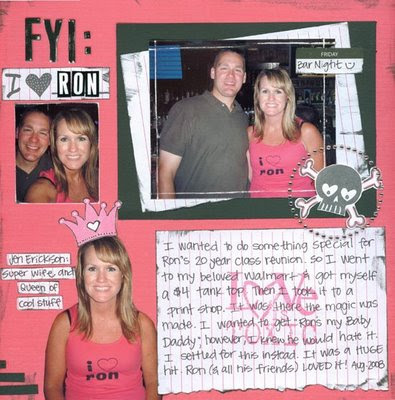 FYI:
I ♥ RON
FRIDAY
Bar Night
i ♥
ron
Jen Erickson:
super wife, and
Queen of
cool stuff
i ♥
ron
I wanted to do something special for
Ron's 20 year class reunion. So I went
to my beloved Walmart & got myself
a $4 tank top. Then I took it to a
print shop. It was there the magic was
made. I wanted to get "Ron's my Baby
Daddy", however, I knew he would hate it.
I settled for this instead. It was a HUGE
hit. Ron (& all his friends) LOVED IT! Aug. 2008
love